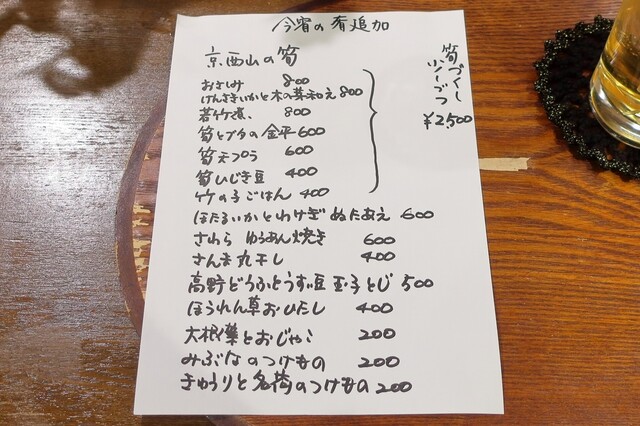 今宵の肴追加
京、西山の筍
おさしみ 800
げんさきいかと木の芽和え 800
若竹煮、 800
筍とブタの金平 600
筍天プラ 600
筍ひじき豆 400
竹の子ごはん 400
筍づくし
¥2,500
ほたるいかとわけぎ ぬたあえ 600
さわら ゆうあん焼き 600
さんま丸干し 400
高野どうふとうすい豆 玉子とじ 500
ほうれん草おひたし 400
大根葉とおじゃこ 200
みぶなのつけもの 200
きゅうりと茗荷のつけもの 200